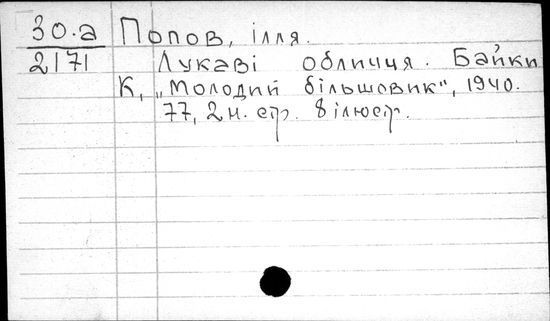 30.а Попов, ілля.
2171 Лукаві обличчя. Байки
К, „Молодий більшовик", 1940.
77, 2 н. стр. 8 ілюстр.